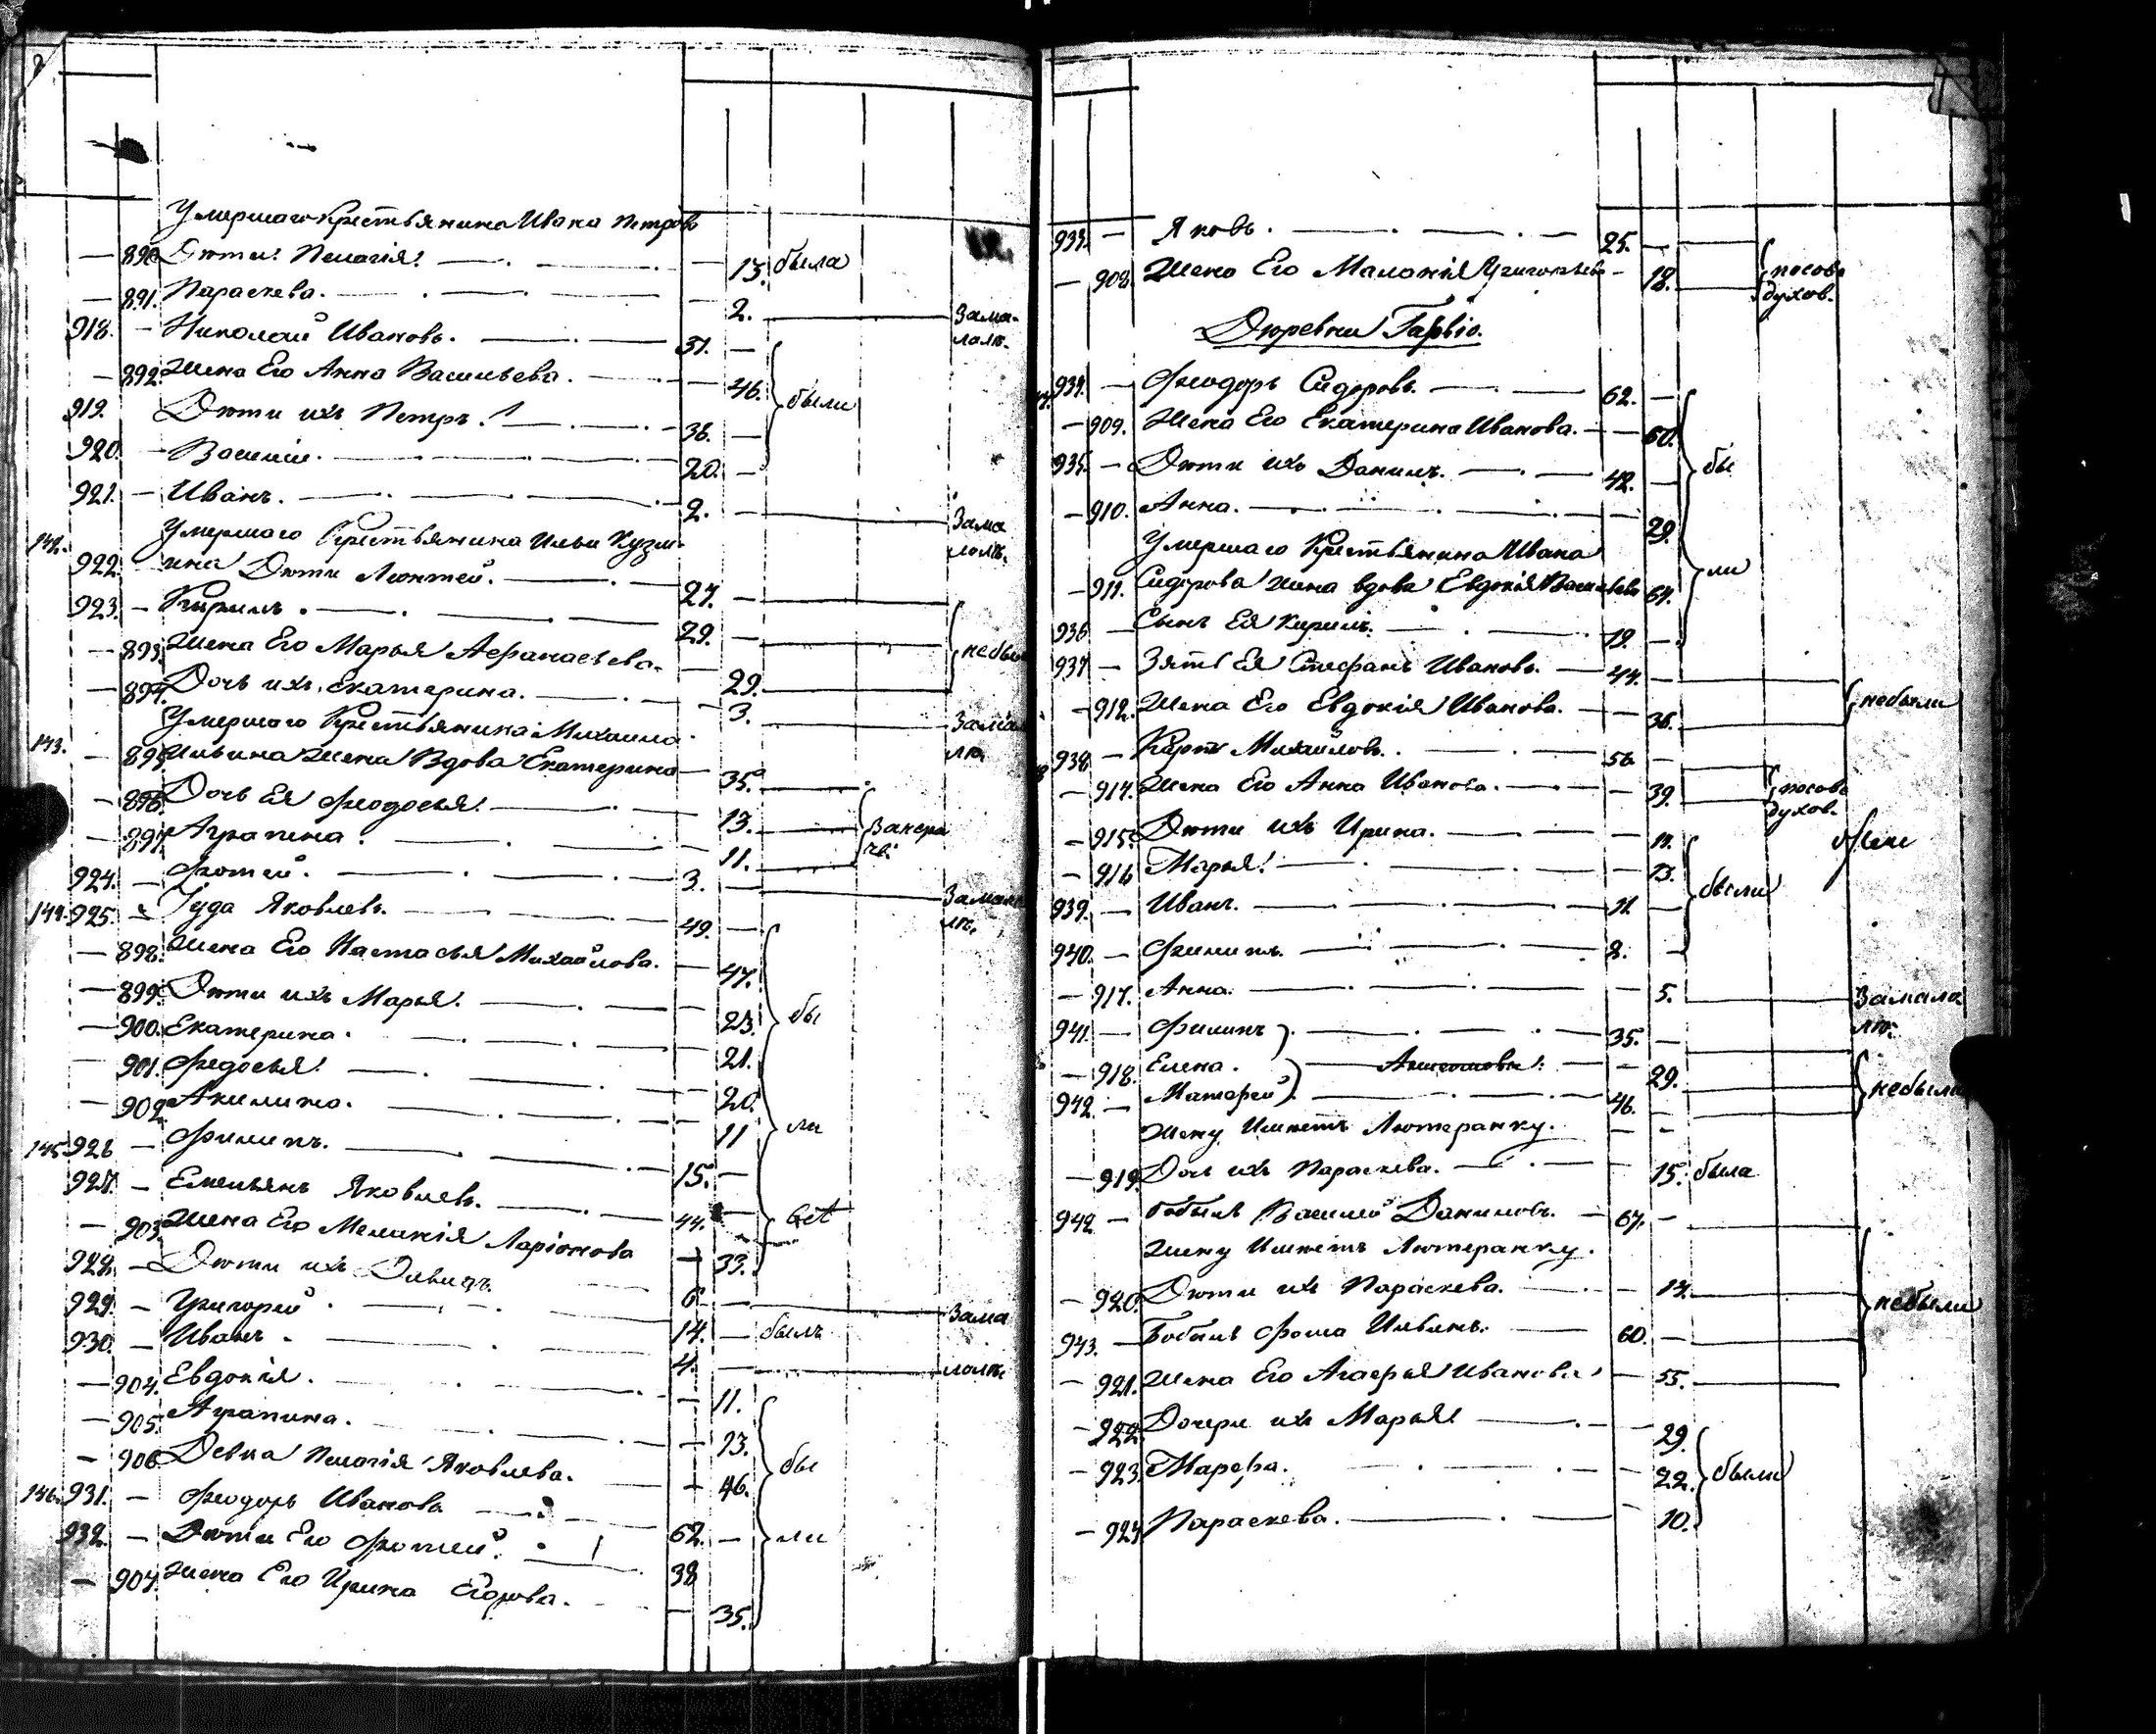 Умершаго Крестьянина Ивана Петрова
— 890. Дѣти: Пелагія. — 13. была
— 891. Параскева. — 2. — Зама-
лолѣ.
918. — Николай Ивановъ. — 37. —
— 892. Жена Его Анна Васильева. — 46. были
919. Дѣти ихъ Петръ. — 36. —
920. — Василій. — 20. —
921. — Иванъ. — 2. — Зама
лолѣ.
142. Умершаго Крестьянина Ильи Кузм-
922. ина Дѣти Леонтей. — 27. —
923. — Кирилъ. — 29. — небыли
— 893. Жена Его Марья Аефанасьева. — 29.
— 894. Дочь ихъ Екатерина. — 3. — Замал
лѣ.
Умершаго Крестьянина Михаила
143. — 895. Ильина Жена Вдова Екатерина — 35.
— 896. Дочь Ея Феодосья. — 13.
— 897. Аграпина. — 11.
924. — Фотей. — 3. — Замал
лѣ.
144. 925. — Іуда Яковлевъ. — 49. —
— 898. Жена Его Настасья Михайлова. — 47.
— 899. Дѣти ихъ Марья. — 23. бы
— 900. Екатерина. — 21.
— 901. Федосья. — 20.
— 902. Акилина. — 11 ли
145. 926 — Филипъ. — 15. —
927. — Емельянъ Яковлевъ. — 44. —
— 903. Жена Его Меланія Ларіонова — 33.
928. — Дѣти ихъ Давидъ. 6. — Зама
929. — Григорей. — 14. — былъ
930. — Иванъ. — 4. — лолѣ
— 904. Евдокія. — 11.
— 905. Аграпина. — 13.
— 906. Девка Пелагія Яковлева. — 46. бы
146. 931. — Феодоръ Ивановъ — 62. —
932. — Дѣти Его Фотей. 38 ли
— 907. Жена Его Ирина Егорова. — 35.
933. — Яковъ. — 25. —
— 908. Жена Его Маланія Григорьева — 18. посовѣ
духов.
Деревни Гарвіо.
934. — Феодоръ Сидоровъ. — 62. —
— 909. Жена Его Екатерина Иванова. — 60.
935. — Дѣти ихъ Данилъ. — 42. — бы
— 910. Анна. — 29.
Умершаго Крестьянина Ивана
— 911. Сидорова жена вдова Евдокія Васильева 64. ли
936 — Сынъ Ея Кирилъ. — 19. —
937 — Зять Ея Стефанъ Ивановъ. — 44. —
— 912. Жена Его Евдокія Иванова. — 36. небыли
938 — Карпъ Михайловъ. — 56 —
— 914. Жена Его Анна Иванова. — 39. посовѣ
духов.
— 915. Дѣти ихъ Ирина. — 19.
— 916 Марья. — 13.
939. — Иванъ. — 11 — были
940. — Филипъ. — 8. —
— 917. Анна. — 5. — Замало
лѣ.
941. — Филипъ — 35. —
— 918. Елена. — 29.
942. — Матфей — 46. — небыли
Жену Имѣетъ Лютеранку. — —
— 919. Дочь ихъ Параскева. — 15. была
942 — Бобыль Василей Даниловъ. — 67. —
Жену Имѣетъ Лютеранку.
— 920. Дѣти ихъ Параскева. — 17. небыли
943. — Бобыль Фома Ильинъ. — 60. —
— 921. Жена Его Агафья Иванова — 55.
— 922. Дочери ихъ Марья — 29.
— 923. Марфа. — 22. были
— 924 Параскева. — 10.